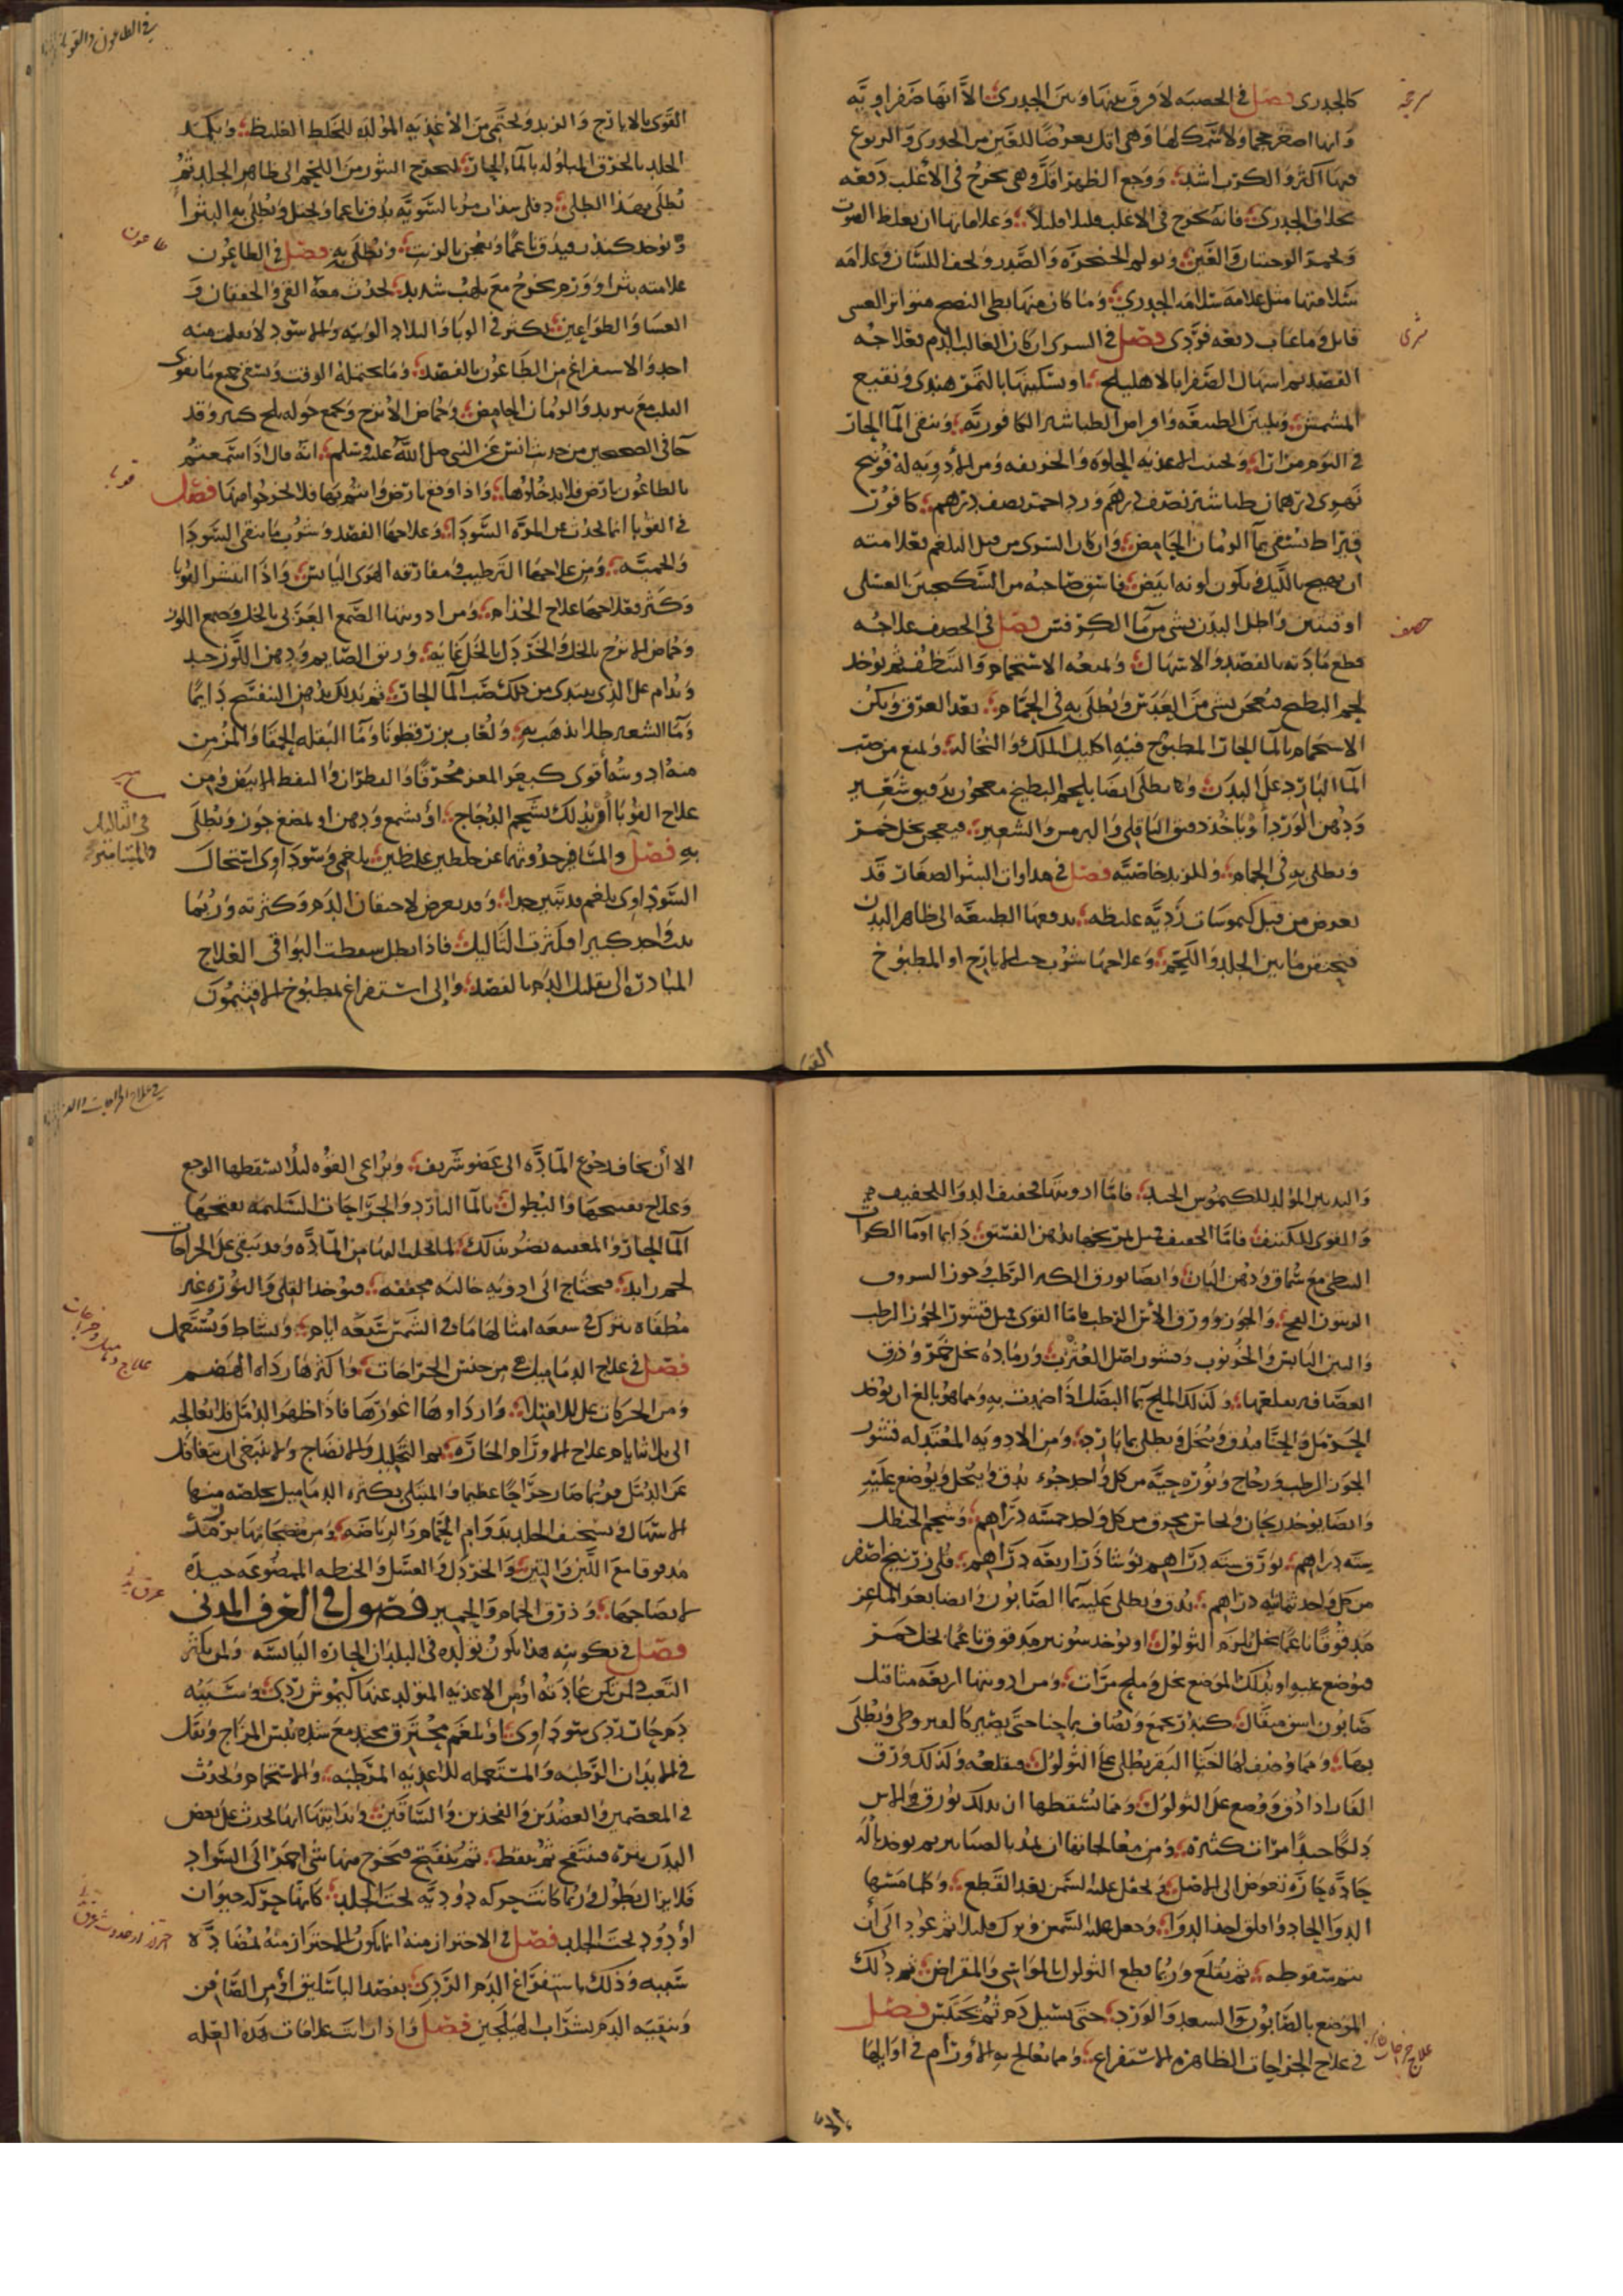 كالجدرى فصل فى الحصبه لا فرق بينها وبين الجدرى الا انها صفراويه
وانها اصغر حجما ولا سمك لها وهى اقل تعرضا للعين من الجدرى والتهوع
فيها اكثر والكرب اشد ووجع الظهر اقل وهى تخرج فى الأغلب دفعه
بخلاف الجدرى فانه يخرج فى الاغلب قليلا قليلا وعلاماتها ان يغلظ الصوت
وتحمر الوجنتان والعين ويؤلم الحنجره والصدر ويجف اللسان وعلامه
سلامتها مثل علامه سلامه الجدرى وما كان منها بطى النضج متواتر الغشى
قاتل وما غاب دفعه فردى فصل فى الشرى ان كان الغالب الدم فعلاجه
الفصد ثم اسهال الصفرا بالاهليلج او تسكينها بالتمر هندى ونقيع
المشمش وتليين الطبيعه واقراص الطباشير الكافوريه وسقى الما الحار
فى اليوم مرارا وتجنب الاغذيه الحلوه والحريفه ومن الأدويه له فوتنج
نهرى درهمان طباشير نصف درهم ورد احمر نصف درهم كافور
قيراط يسقى بما الرمان الحامض وان كان الشرى من قبل البلغم فعلامته
ان يهيج بالليل ويكون لونه ابيض فاسق صاحبه من السكنجبين العسلى
اوقيتين واطل البدن بشى من ما الكرفس فصل فى الحصف علاجه
قطع مادته بالفصد والاسهال ويمنعه الاستحمام والتنظف ثم يوخذ
لحم البطيخ فيعجن بشى من العدس ويطلى به فى الحمام بعد العرق ويكن
الاستحمام بالما الحار المطبوخ فيه اكليل الملك والنخاله ويمنع من صب
الما البارد على البدن ويطلى ايضا بلحم البطيخ معجون بدقيق شعير
ودهن الورد أو ياخذ دقيق الباقلى والترمس والشعير فيعجن بخل خمر
ويطلى به فى الحمام وللزبد خاصيه فصل فى مداواه البثور الصغار قد
تعرض من قبل كيموسات رديه غليظه تدفعها الطبيعه الى ظاهر البدن
فيحتقن ما بين الجلد واللحم وعلاجها شرب حب الايارج او المطبوخ
القوى
فى الطاعون والقوبا
القوى بالايارج والتربد ويحتمى من الأغذيه المولده للخلط الغليظ ويكمد
الجلد بالخرق المبلوله بالما الحار ليخرج البثور من اللحم الى ظاهر الجلد ثم
تطلى بهذا الطلى
ويوخذ كندر فيدق ناعما ويعجن بالزيت ويطلى به فصل فى الطاعون
علامته بثر او ورم يخرج مع تلهب شديد يحدث معه القى والخفقان و
الغشى والطواعين تكثر فى الوبا والبلاد الوبيه والاسود لا يفلت منه
احد والاستفراغ من الطاعون بالفصد وما يحتمله الوقت ويسقى جميع ما يقوى
القلب مع تبريد والرمان الحامض وحماض الأترج ويجمع حوله ثلج كثير وقد
جا فى الصحيحين من حديث انس عن النبى صلى الله عليه وسلم انه قال اذا سمعتم
بالطاعون بارض فلا تدخلوها واذا وقع بارض وانتم بها فلا تخرجوا منها فصل
فى القوبا انما تحدث من المره السودا وعلاجها الفصد وشرب ما ينقى السودا
والحميه ومن علاجها الترطيب ومفارقه الهوى اليابس واذا انتشر القوبا
وكثر فعلاجها علاج الجذام ومن ادويتها الصمغ العربى بالخل وصمغ اللوز
وحماض الاترج بالخل والخردل بالخل غايه وريق الصايم ودهن اللوز جيد
ويدام على الذى يبتدى من ذلك صب الما الحار ثم يدلك بدهن البنفسج دايما
وما الشعير طلا يذهب به ولعاب بزر قطونا وما البقله الحمقا والمزمن
منه ادويته أقوى كبعر المعز محرقا والقطران والنفط الابيض ومن
علاج القوبا ان يدلك بشحم الدجاج أو بشمع ودهن او بمضغ جوز ويطلى
به فصل والمسامير حدوثها عن خلطين غليظين بلغمى وسوداوى استحال
السوداوى بلغم قد تبين جدا وقد يعرض لاحتقان الدم وكثرته وربما
نبت واحد كبير فكثرت الثاليل فاذا بطل سقطت البواقى العلاج
المبادره الى تقليل الدم بالفصد والى استفراغ بمطبوخ الافتيمون
والتدبير المولد للكيموس الجيد فاما ادويتها فخفيف الدوا للخفيف
والقوى للكثيف فاما الخفيف فمثل تمريخها بدهن الفستق دايما وما الكراث
النبطى مع سماق ودهن البان وايضا بورق الكبر الرطب وجوز السرو و
الزيتون الفج والجوز وورق الأس الرطب واما القوى فمثل قشور الجوز الرطب
والتين اليابس والخرنوب وقشور اصل الغرب ورماده بخل خمر وذرق
العصافير يقلعها وكذلك الملح بما البصل اذا ضمدت به ومما هو بالغ ان يوخذ
الحرمل والحنا فيدق وينخل ويطلى بما بارد ومن الادويه المعتدله قشور
الجوز الرطب وزجاج ونوره حيه من كل واحد جزء يدق وينخل ويوضع عليه
وايضا يوخذ زنجار ونحاس محرق من كل واحد خمسه دراهم وشحم الحنظل
سته دراهم بورق سته دراهم نوشاذر اربعه دراهم قلى زرنيخ اصفر
من كل واحد ثمانيه دراهم يدق ويطلى عليه بما الصابون وايضا بعر الماعز
مدقوقا ناعما بخل يلزم الثولول او يوخذ شونيز مدقوق ناعما بخل خمر
فيوضع عليه او يدلك الموضع بخل وملح مرات ومن ادويتها اربعه مثاقيل
صابون
بها ومما وصف لها اختا البقر يطلى على الثولول فيقلعه وكذلك ورق
الغار اذا دق ووضع على الثولول ومما يسقطها ان يدلك بورق الاس
دلكا جيدا مرات كثيره ومن معالجاتها
حاده
الدوا الحاد
يتم سقوطه ثم يقلع وربما قطع الثولول بالمواسى والمقراض ثم دلك
الموضع بالصابون والسعد والورد حتى يسيل دم ثم يحتبس فصل
فى علاج الجراحات الظاهره الاستفراع ومما يعالج به الأورام فى اوايلها
الا
الا أن يخاف رجوع الماده الى عضو شريف ويراعى القوه ليلا يسقطها الوجع
وعلاج تفتيحها والنطول بالما البارد والجراجات السليمه يفتحها
الما الحار والمعفنه يضر بذلك لما يجلب اليها من الماده وقد يبقى على الجراحات
لحم زايد فيحتاج الى ادويه جاليه مجففه فيوخذ القلى والنوره غير
مطفاه يترك فى سبعه امثالها ما فى الشمس سبعه ايام ويساط ويستعمل
فصل فى علاج الدماميل هى من جنس الجراحات واكثرها رداه الهضم
ومن الحركات على الامتلا واردأوها اغورها فاذا ظهر الدمل فلا تعالجه
الى ثلاثه ايام علاج الاورام الحاره ثم التحليل والانضاج ولا ينبغى ان يتغافل
عن الدمل فربما صار خراجا عظيما والمبتلى بكثره الدماميل يخلصه منها
الاسهال وتسخيف الجلد بدوام الحمام والرياضه ومن منضجاتها بزر مرو
مدقوقا مع اللبن والتين والخردل والعسل والحنطه الممضوغه جيده
لانضاجها وذرق الحمام والخمير فصول فى العرق المدنى
فصل فى تكوينه هذا يكون تولده فى البلدان الحاره اليابسه ولمن يكثر
التعب ولم تكن عادته أو من الاغذيه المتولد عنها كيموس ردى وسببه
دم حار ردى سوداوى أو بلغم محترق محتد مع شده يبس المزاج ويقل
فى الابدان الرطبه والمستعمله للاغذيه المرطبه والاستحمام ويحدث
فى المعصمين والعضدين والفخذين والساقين وفى ندرتها انها تحدث على بعض
البدن بثره فتنتفخ ثم تنقط ثم تنفتح فيخرج منها شى احمر الى السواد
فلا يزال يطول وربما كانت حركه دوديه تحت الجلد كانها حركه حيوان
أو دود تحت الجلد فصل فى الاحتراز منه انما يكون الاحتراز منه بمضاده
سببه وذلك باستفراغ الدم الردى بفصد الباسليق أو من الصافن
وتنقيه الدم بشراب الهليلجين فصل واذا رات علامات هذه العله